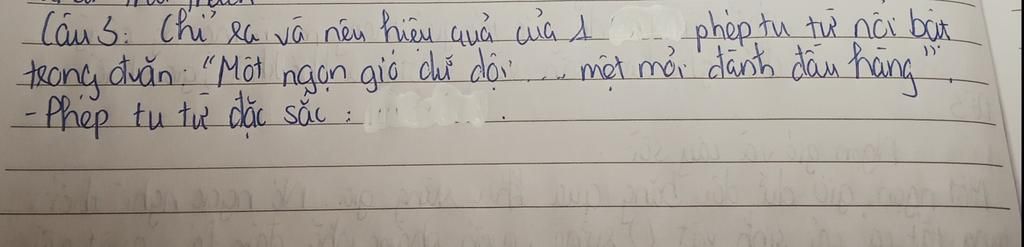 Câu 3: Chỉ ra và nêu hiệu quả của 1 phép tu từ nổi bật
trong đvăn. "Một ngọn gió dữ dội ... mệt mỏi đành đầu hàng".
- Phép tu từ đặc sắc : .